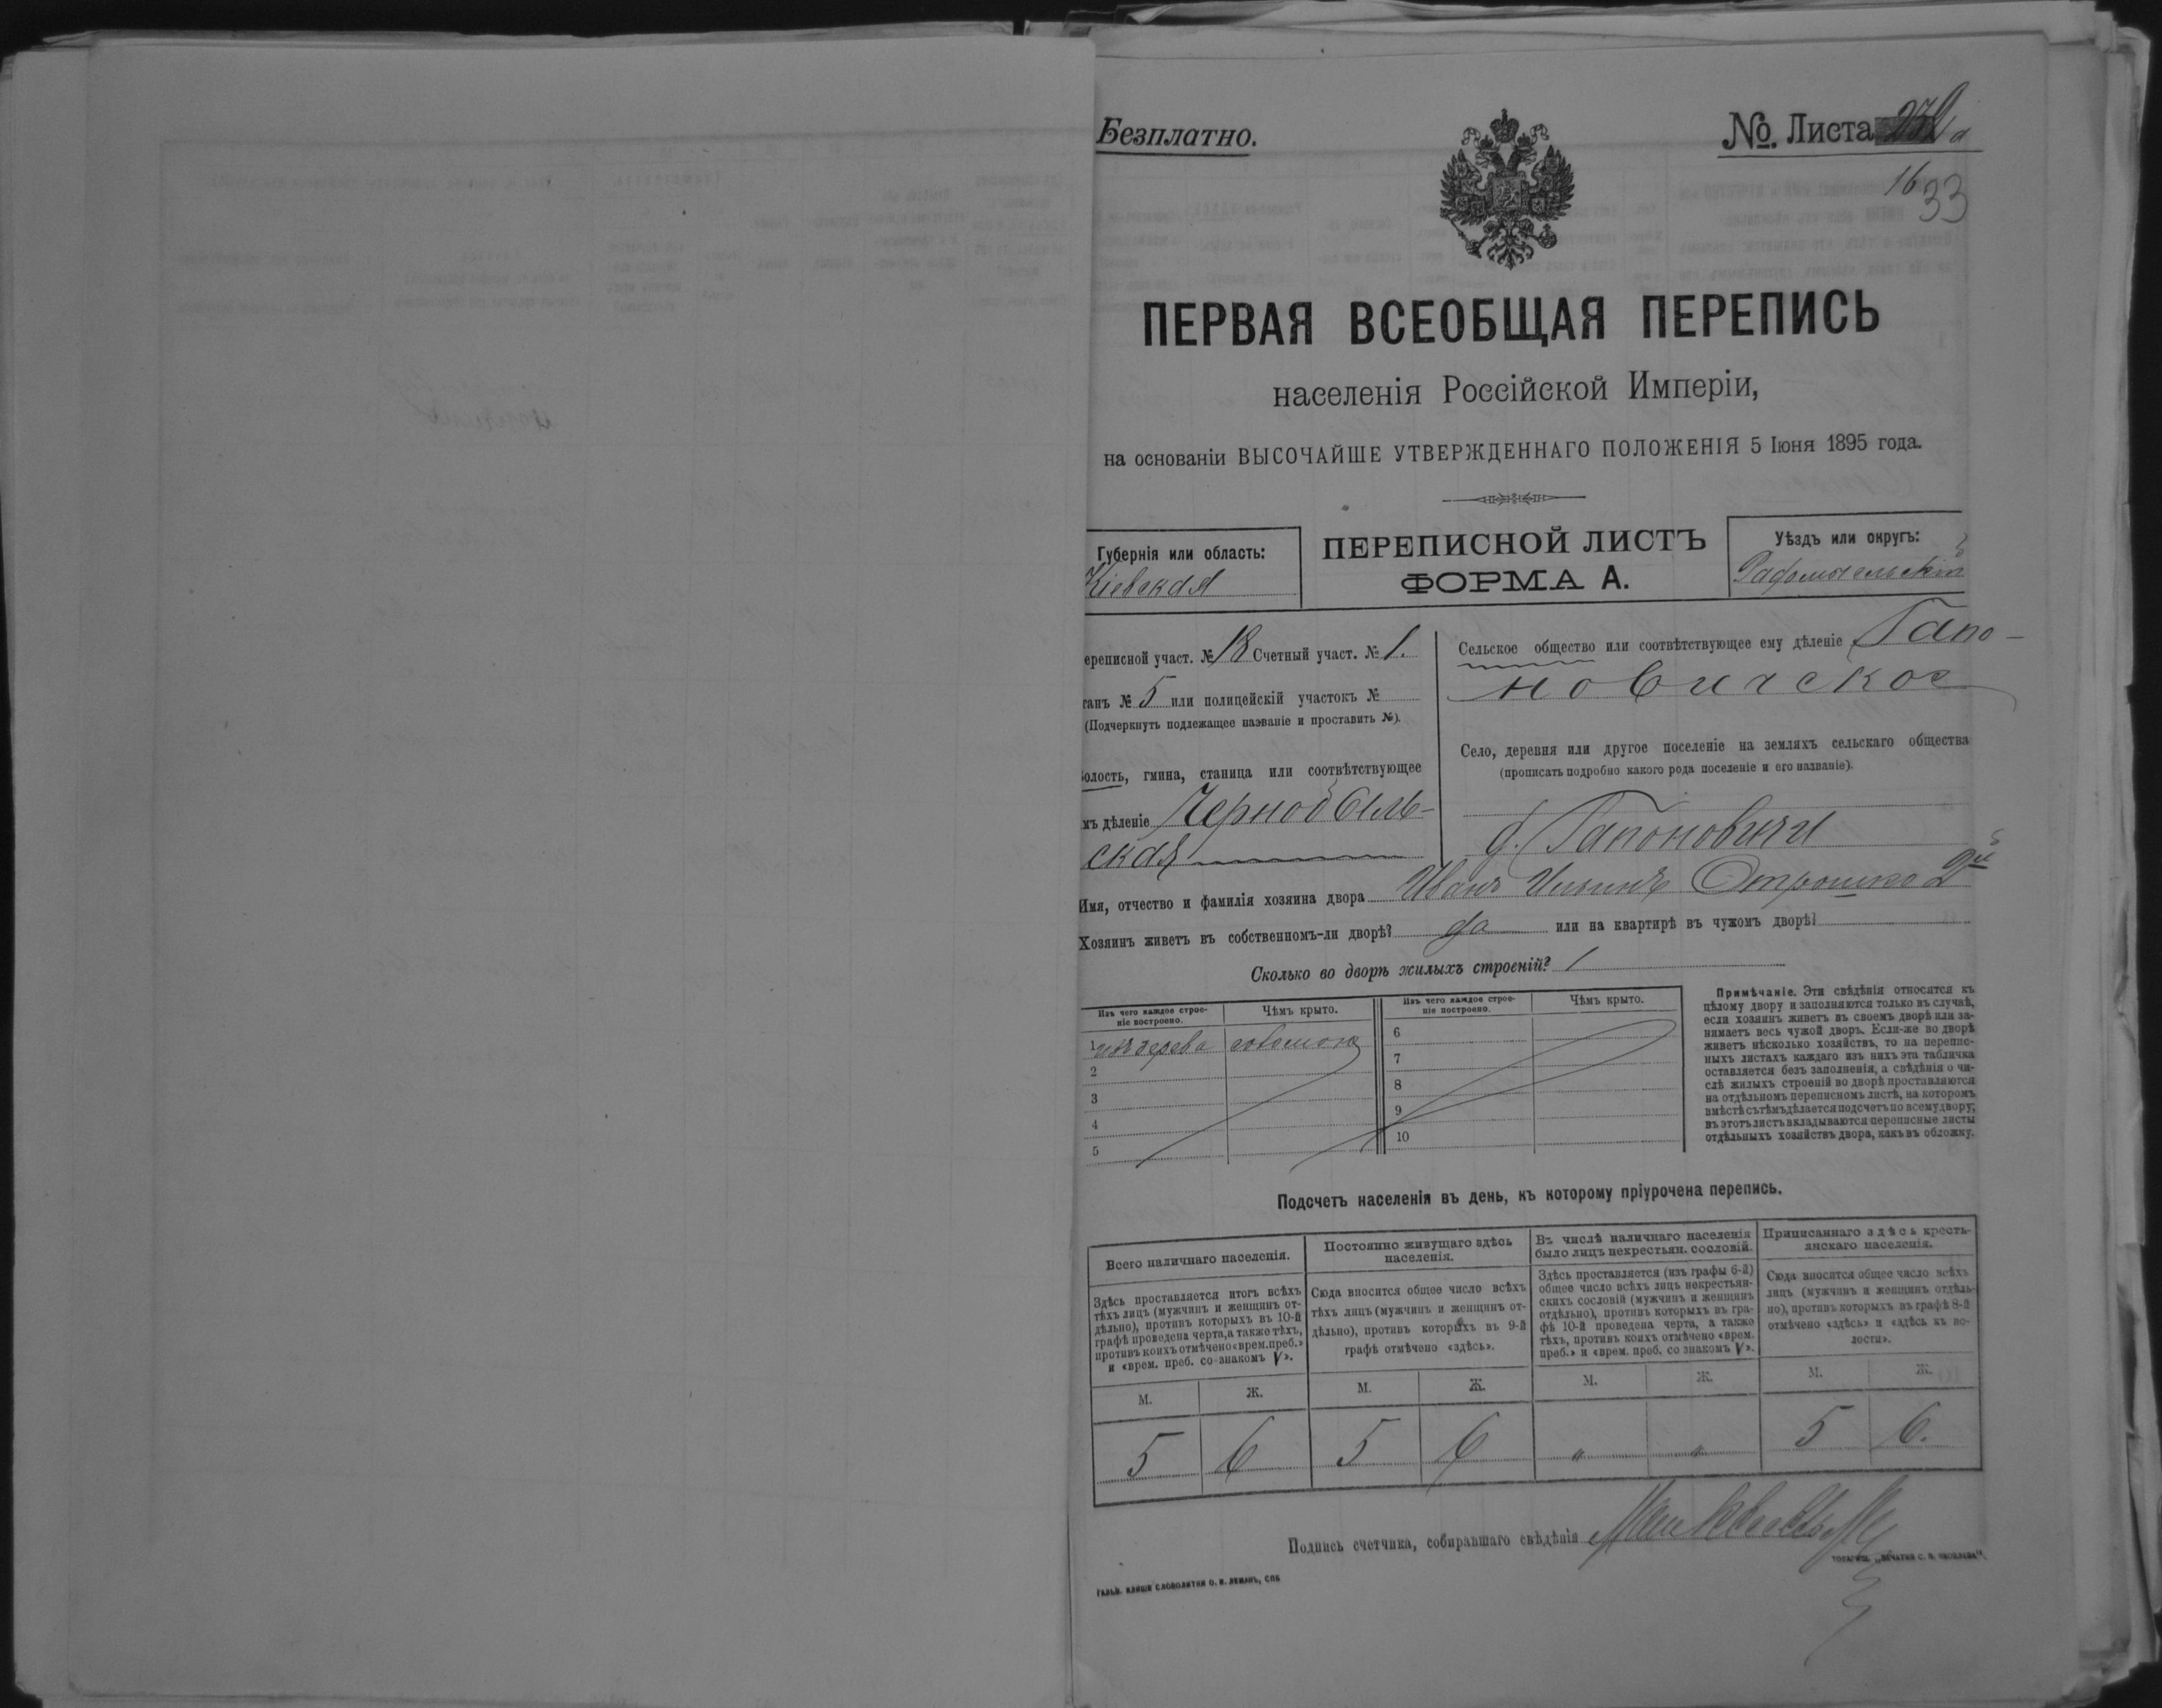 Безплатно.
№. Листа
16
33
ПЕРВАЯ ВСЕОБЩАЯ ПЕРЕПИСЬ
населенія Россійской Имперіи,
на основаніи ВЫСОЧАЙШЕ УТВЕРЖДЕННАГО ПОЛОЖЕНІЯ 5 Іюня 1895 года.
Губернія или область:
Кіевская
ПЕРЕПИСНОЙ ЛИСТЪ
ФОРМА А.
Уѣздъ или округъ:
Радомысльскій
ереписной участ. № 18 Счетный участ. № 1.
танъ № 5 или полицейскій участокъ №
(Подчеркнуть подлежащее названіе и проставить №).
олость, гмина, станица или соотвѣтствующее
мъ дѣленіе Чернобыль-
ская
Сельское общество или соотвѣтствующее ему дѣленіе Гапо-
новичское
Село, деревня или другое поселеніе на земляхъ сельскаго общества
(прописать подробно какого рода поселеніе и его названіе).
д. Гапоновичи
Имя, отчество и фамилія хозяина двора Иванъ Ильинъ Отрошко 2й
Хозяинъ живетъ въ собственномъ-ли дворѣ? да или на квартирѣ въ чужомъ дворѣ?
Сколько во дворѣ жилыхъ строеній? 1
Изъ чего каждое строе-
ніе построено.
Чѣмъ крыто.
1 изъ дерева соломою
2
3
4
5
Изъ чего каждое строе-
ніе построено.
Чѣмъ крыто.
6
7
8
9
10
Примѣчаніе. Эти свѣдѣнія относятся къ
цѣлому двору и заполняются только въ случаѣ,
если хозяинъ живетъ въ своемъ дворѣ или за-
нимаетъ весь чужой дворъ. Если-же во дворѣ
живетъ нѣсколько хозяйствъ, то на перепис-
ныхъ листахъ каждаго изъ нихъ эта табличка
оставляется безъ заполненія, а свѣдѣнія о чи-
слѣ жилыхъ строеній во дворѣ проставляются
на отдѣльномъ переписномъ листѣ, на которомъ
вмѣстѣ съ тѣмъ дѣлается подсчетъ по всему двору;
въ этотъ листъ вкладываются переписные листы
отдѣльныхъ хозяйствъ двора, какъ въ обложку.
Подсчетъ населенія въ день, къ которому пріурочена перепись.
Всего наличнаго населенія.
Здѣсь проставляется итогъ всѣхъ
тѣхъ лицъ (мужчинъ и женщинъ от-
дѣльно), противъ которыхъ въ 10-й
графѣ проведена черта, а также тѣхъ,
противъ коихъ отмѣчено «врем. преб.»
и «врем. преб. со знакомъ V».
М. Ж.
5 6
Постоянно живущаго здѣсь
населенія.
Сюда вносится общее число всѣхъ
тѣхъ лицъ (мужчинъ и женщинъ от-
дѣльно), противъ которыхъ въ 9-й
графѣ отмѣчено «здѣсь».
М. Ж.
5 6
Въ числѣ наличнаго населенія
было лицъ некрестьян. сословій.
Здѣсь проставляется (изъ графы 6-й)
общее число всѣхъ лицъ некрестьян-
скихъ сословій (мужчинъ и женщинъ
отдѣльно), противъ которыхъ въ гра-
фѣ 10-й проведена черта, а также
тѣхъ, противъ коихъ отмѣчено «врем.
преб.» и «врем. преб. со знакомъ V».
М. Ж.
" "
Приписаннаго здѣсь кресть-
янскаго населенія.
Сюда вносится общее число всѣхъ
лицъ (мужчинъ и женщинъ отдѣль-
но), противъ которыхъ въ графѣ 8-й
отмѣчено «здѣсь» и «здѣсь къ во-
лости».
М. Ж.
5 6.
Подпись счетчика, собиравшаго свѣдѣнія
ТОВАРИЩ. „ПЕЧАТНЯ С. П. ЯКОВЛЕВА".
ГАЛЬВ. КЛИШЕ СЛОВОЛИТНИ О. И. ЛЕМАНЪ, СПБ